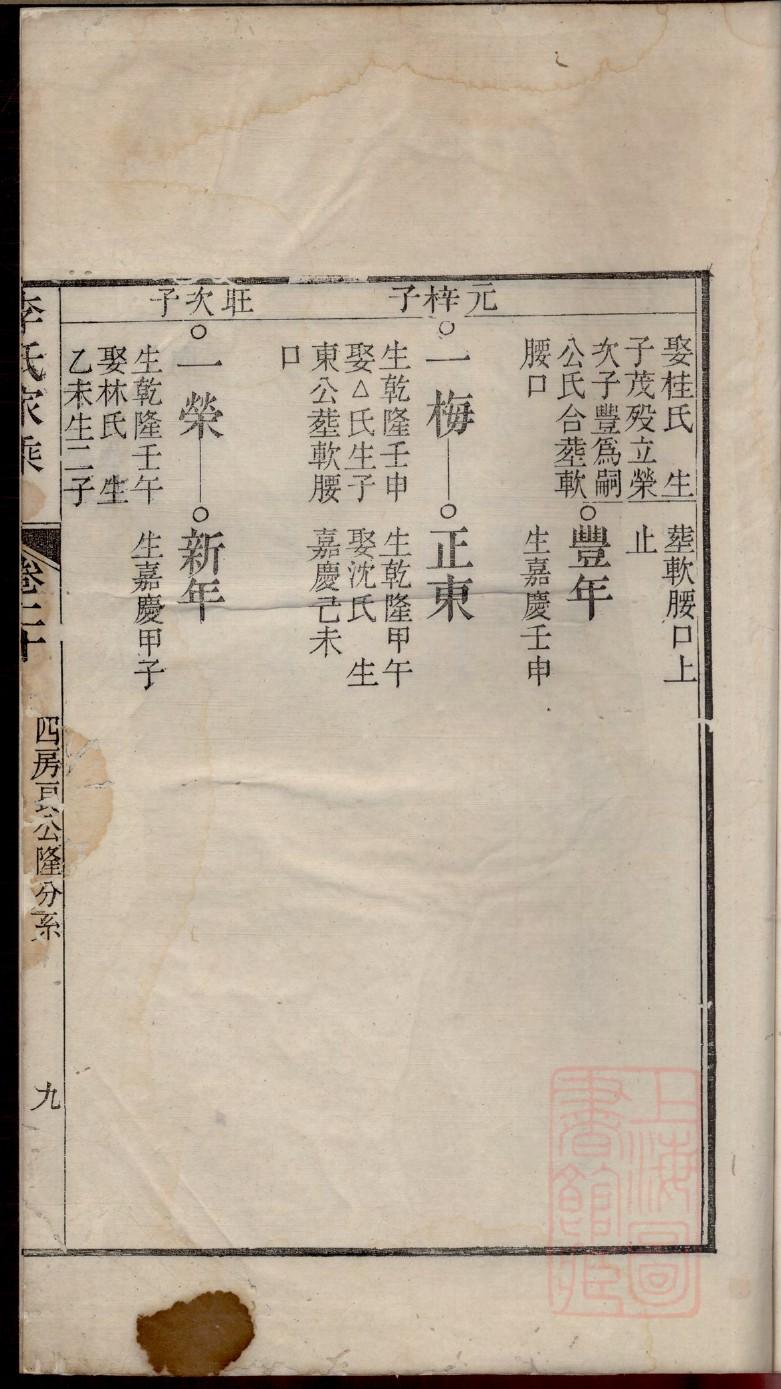 娶桂氏　生
子茂歿立榮
次子豐爲嗣
公氏合塟軟
腰口
塟軟腰口上
止
豐年
生嘉慶壬申
元梓子
一梅
生乾隆壬申
娶△氏生子
東公塟軟腰
口
正東
生乾隆甲午
娶沈氏　生
嘉慶己未
旺次子
一榮
生乾隆壬午
娶林氏　生
乙未生二子
新年
生嘉慶甲子
李氏家乘
卷二十
四房 公隆分系
九
上海圖
書館藏